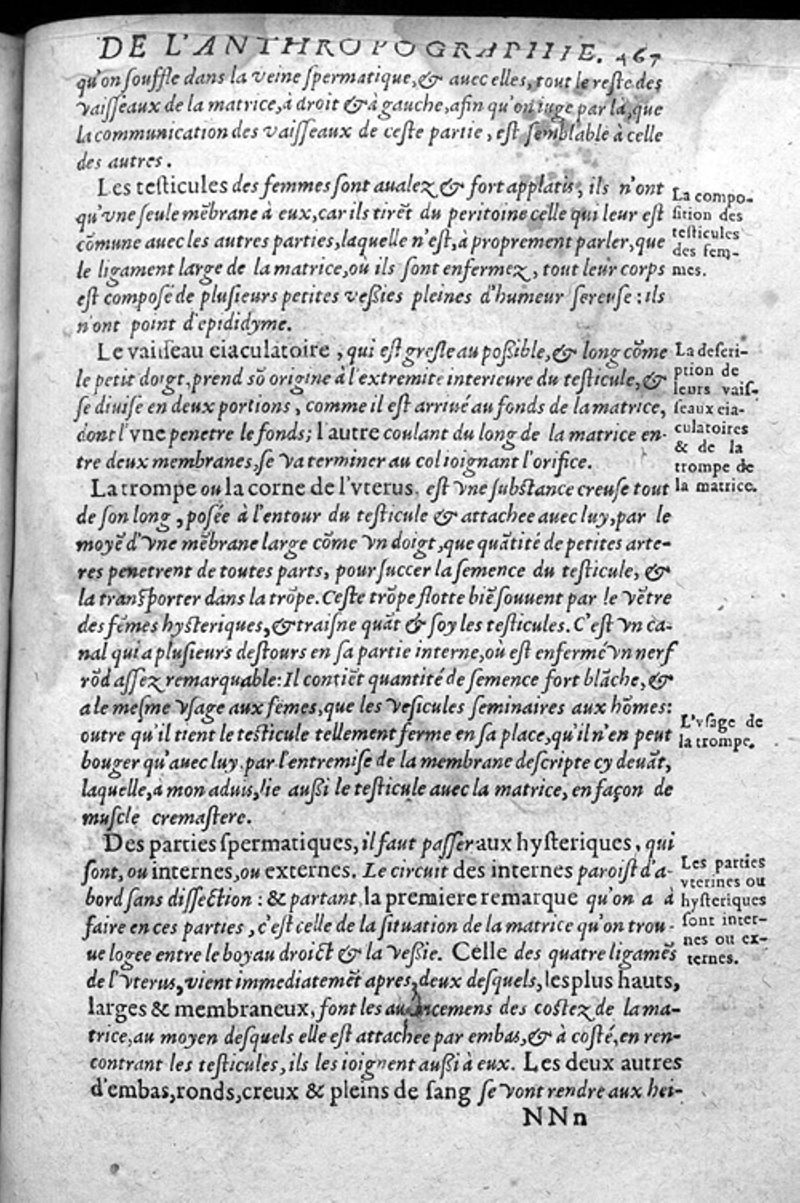 DE L'ANTHROPOGRAPHIE. 467
qu'on souffle dans la veine spermatique, & auec elles, tout le reste des
vaisseaux de la matrice, à droit & à gauche, afin qu'on iuge par là, que
la communication des vaisseaux de ceste partie, est semblable à celle
des autres.
Les testicules des femmes sont aualez & fort applatis, ils n'ont
qu'vne seule mẽbrane à eux, car ils tirẽt du peritoine celle qui leur est
cõmune auec les autres parties, laquelle n'est, à proprement parler, que
le ligament large de la matrice, où ils sont enfermez, tout leur corps
est composé de plusieurs petites vessies pleines d'humeur sereuse : ils
n'ont point d'epididyme.
La compo-
sition des
testicules
des fem-
mes.
Le vaisseau eiaculatoire, qui est gresle au possible, & long cõme
le petit doigt, prend sõ origine à l'extremite interieure du testicule, &
se diuise en deux portions, comme il est arriué au fonds de la matrice,
dont l'vne penetre le fonds; l'autre coulant du long de la matrice en-
tre deux membranes, se va terminer au col ioignant l'orifice.
La descri-
ption de
leurs vais-
seaux eia-
culatoires
& de la
trompe de
la matrice.
La trompe ou la corne de l'vterus, est vne substance creuse tout
de son long, posée à l'entour du testicule & attachee auec luy, par le
moyẽ d'vne mẽbrane large cõme vn doigt, que quãtité de petites arte-
res penetrent de toutes parts, pour succer la semence du testicule, &
la transporter dans la trõpe. Ceste trõpe flotte biẽ souuent par le vẽtre
des fẽmes hysteriques, & traisne quãt & soy les testicules. C'est vn ca-
nal qui a plusieurs destours en sa partie interne, où est enfermé vn nerf
rõd assez remarquable: Il contiẽt quantité de semence fort blãche, &
a le mesme vsage aux fẽmes, que les vesicules seminaires aux hõmes:
outre qu'il tient le testicule tellement ferme en sa place, qu'il n'en peut
bouger qu'auec luy, par l'entremise de la membrane descripte cy deuãt,
laquelle, à mon aduis, lie aussi le testicule auec la matrice, en façon de
muscle cremastere.
L'vsage de
la trompe.
Des parties spermatiques, il faut passer aux hysteriques, qui
sont, ou internes, ou externes. Le circuit des internes paroist d'a-
bord sans dissection : & partant, la premiere remarque qu'on a à
faire en ces parties, c'est celle de la situation de la matrice qu'on trou-
ue logee entre le boyau droict & la vessie. Celle des quatre ligamẽs
de l'vterus, vient immediatemẽt apres, deux desquels, les plus hauts,
larges & membraneux, font les auancemens des costez de la ma-
trice, au moyen desquels elle est attachee par embas, & à costé, en ren-
contrant les testicules, ils les ioignent aussi à eux. Les deux autres
d'embas, ronds, creux & pleins de sang se vont rendre aux hei-
Les parties
vterines ou
hysteriques
sont inter-
nes ou ex-
ternes.
NNn